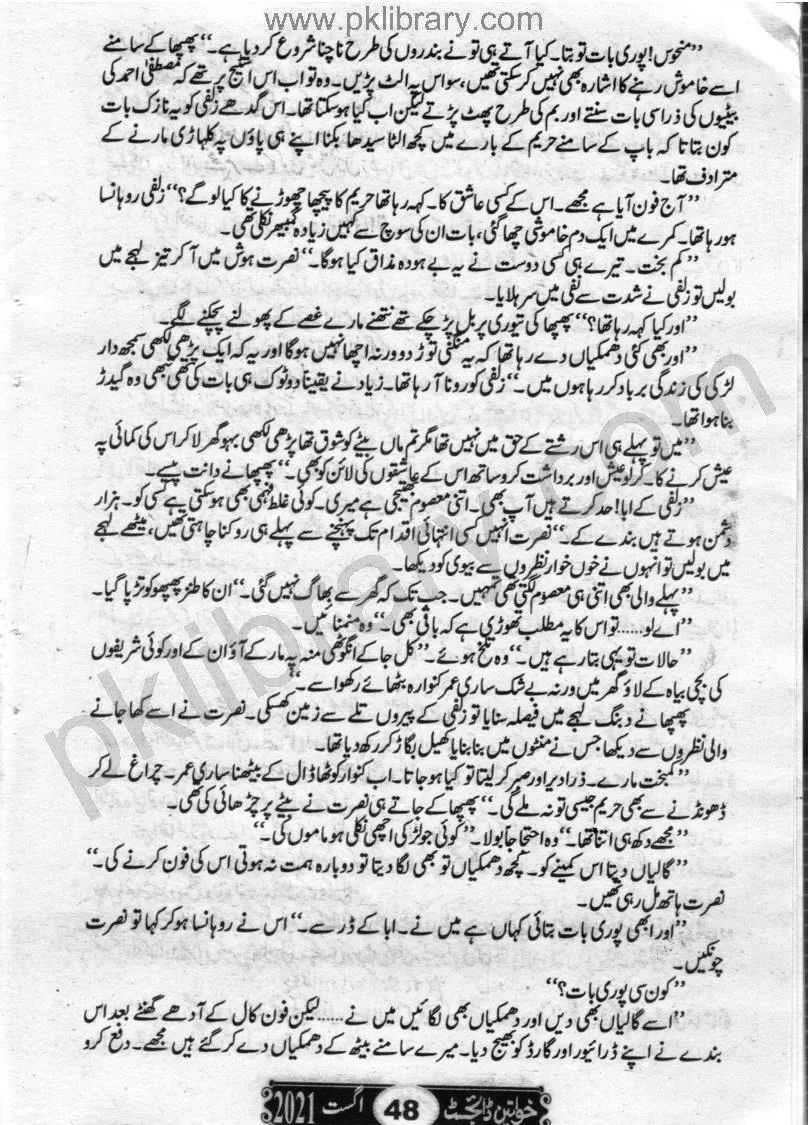 www.pklibrary.com
’’منحوس! پوری بات تو بتا۔ کیا آتے ہی تو نے بندروں کی طرح ناچنا شروع کر دیا ہے۔‘‘ پھپھا کے سامنے
اسے خاموش رہنے کا اشارہ بھی نہیں کر سکتی تھیں، سو اس پہ الٹ پڑیں۔ وہ تو اب اس اسٹیج پر تھے کہ مصطفیٰ احمد کی
بیٹیوں کی ذرا سی بات سنتے اور بم کی طرح پھٹ پڑتے لیکن اب کیا ہو سکتا تھا۔ اس گدھے زلفی کو یہ نازک بات
کون بتاتا کہ باپ کے سامنے حریم کے بارے میں کچھ الٹا سیدھا بکنا اپنے ہی پاؤں پہ کلہاڑی مارنے کے
مترادف تھا۔
’’آج فون آیا ہے مجھے۔ اس کے کسی عاشق کا۔ کہہ رہا تھا حریم کا پیچھا چھوڑنے کا کیا لو گے؟‘‘ زلفی روہانسا
ہو رہا تھا۔ کمرے میں ایک دم خاموشی چھا گئی، بات ان کی سوچ سے کہیں زیادہ گمبھیر نکلی تھی۔
’’کم بخت۔ تیرے ہی کسی دوست نے یہ بے ہودہ مذاق کیا ہوگا۔‘‘ نصرت ہوش میں آ کر تیز لہجے میں
بولیں تو زلفی نے شدت سے نفی میں سر ہلایا۔
’’اور کیا کہہ رہا تھا؟‘‘ پھپھا کی تیوری پر بل پڑ چکے تھے نتھنے مارے غصے کے پھولنے پچکنے لگے۔
’’اور بھی کئی دھمکیاں دے رہا تھا کہ یہ منگنی توڑ دو ورنہ اچھا نہیں ہوگا اور یہ کہ ایک پڑھی لکھی سمجھ دار
لڑکی کی زندگی برباد کر رہا ہوں میں۔‘‘ زلفی کو رونا آ رہا تھا۔ زیاد نے یقیناً دو ٹوک ہی بات کی تھی بھی وہ گیدڑ
بنا ہوا تھا۔
’’میں تو پہلے ہی اس رشتے کے حق میں نہیں تھا مگر تم ماں بیٹے کو شوق تھا پڑھی لکھی بہو گھر لا کر اس کی کمائی پہ
عیش کرنے کا۔ کر لو عیش اور برداشت کرو ساتھ اس کے عاشقوں کی لائن کو بھی۔‘‘ پھپھا نے دانت پیسے۔
’’زلفی کے ابا! حد کرتے ہیں آپ بھی۔ اتنی معصوم بھتیجی ہے میری۔ کوئی غلط فہمی بھی ہو سکتی ہے کسی کو۔ ہزار
دشمن ہوتے ہیں بندے کے۔‘‘ نصرت انہیں کسی انتہائی اقدام تک پہنچنے سے پہلے ہی روکنا چاہتی تھیں، میٹھے لہجے
میں بولیں تو انہوں نے خوں خوار نظروں سے بیوی کو دیکھا۔
’’پہلے والی بھی اتنی ہی معصوم لگتی تھی تمہیں۔ جب تک کہ گھر سے بھاگ نہیں گئی۔‘‘ ان کا طنز پھپھو کو تڑپا گیا۔
’’اے لو...... تو اس کا یہ مطلب تھوڑی ہے کہ باقی بھی۔‘‘ وہ منمنائیں۔
’’حالات تو یہی بتا رہے ہیں۔‘‘ وہ تلخ ہوئے۔ ’’کل جا کے انگوٹھی منہ پہ مار کے آؤ ان کے اور کوئی شریفوں
کی بچی بیاہ کے لاؤ گھر میں ورنہ بے شک ساری عمر کنوارہ بٹھائے رکھو اسے۔‘‘
پھپھا نے دبنگ لہجے میں فیصلہ سنایا تو زلفی کے پیروں تلے سے زمین کھسکی۔ نصرت نے اسے کھا جانے
والی نظروں سے دیکھا جس نے منٹوں میں بنا بنایا کھیل بگاڑ کر رکھ دیا تھا۔
’’کمبخت مارے۔ ذرا دیر اور صبر کر لیتا تو کیا ہو جاتا۔ اب کنوار کوٹھا ڈال کے بیٹھنا ساری عمر۔ چراغ لے کر
ڈھونڈنے سے بھی حریم جیسی تو نہ ملے گی۔‘‘ پھپھا کے جاتے ہی نصرت نے بیٹے پر چڑھائی کی تھی۔
’’مجھے دکھ ہی اتنا تھا۔‘‘ وہ احتجاجاً بولا۔ ’’کوئی جو لڑکی اچھی نکلی ہو ماموں کی۔‘‘
’’گالیاں دیتا اس کمینے کو۔ کچھ دھمکیاں تو بھی لگا دیتا تو دوبارہ ہمت نہ ہوتی اس کی فون کرنے کی۔‘‘
نصرت ہاتھ مل رہی تھیں۔
’’اور ابھی پوری بات بتائی کہاں ہے میں نے۔ ابا کے ڈر سے۔‘‘ اس نے روہانسا ہو کر کہا تو نصرت
چونکیں۔
’’کون سی پوری بات؟‘‘
’’اسے گالیاں بھی دیں اور دھمکیاں بھی لگائیں میں نے...... لیکن فون کال کے آدھے گھنٹے بعد اس
بندے نے اپنے ڈرائیور اور گارڈ کو بھیج دیا۔ میرے سامنے بیٹھ کے دھمکیاں دے کر گئے ہیں مجھے۔ دفع کرو
خواتین ڈائجسٹ 48 اگست 2021
pklibrary.com